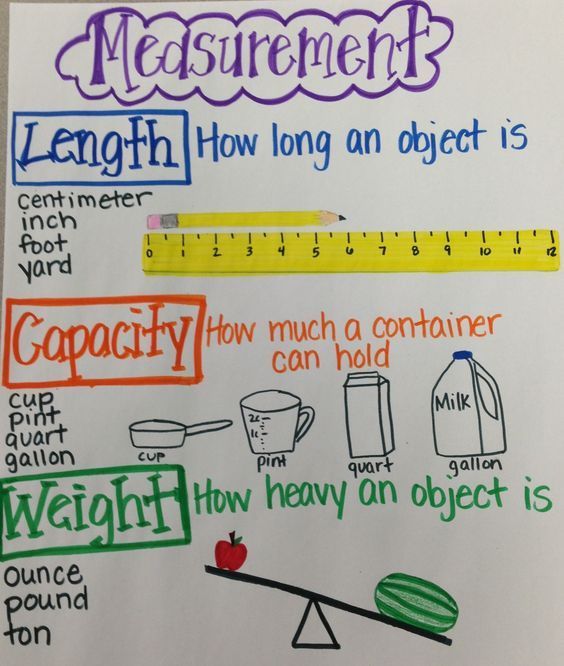 Measurement
Length How long an object is
centimeter
inch
foot
yard
0 1 2 3 4 5 6 7 8 9 10 11 12
Capacity How much a container
can hold
cup
pint
quart
gallon
2c
1c
Milk
cup pint quart gallon
Weight How heavy an object is
ounce
pound
ton